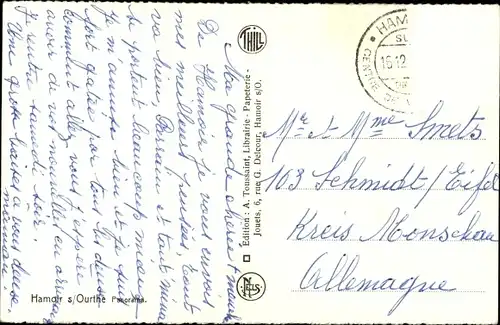 Ma grande chérie
De Hamoir je vous envoie
mes meilleures pensées, tout
va bien, Parrain et tout
se portent beaucoup mieux
je m'amuse bien et je suis
fort gâtée par tous les deux
comment allez vous j'espère
avoir de vos nouvelles en arrivant
je rentre samedi soir.
Une grosse baises a vous deux.
maman.
Hamoir s/Ourthe Panorama.
THILL
Edition: A. Toussaint, Librairie - Papeterie -
Jouets, 6, rue G. Delcour, Hamoir s/O.
NELS
HAM
16 12
Mr et Mme Smets
103 Schmidt/Eifel
Kreis Monschau
Allemagne